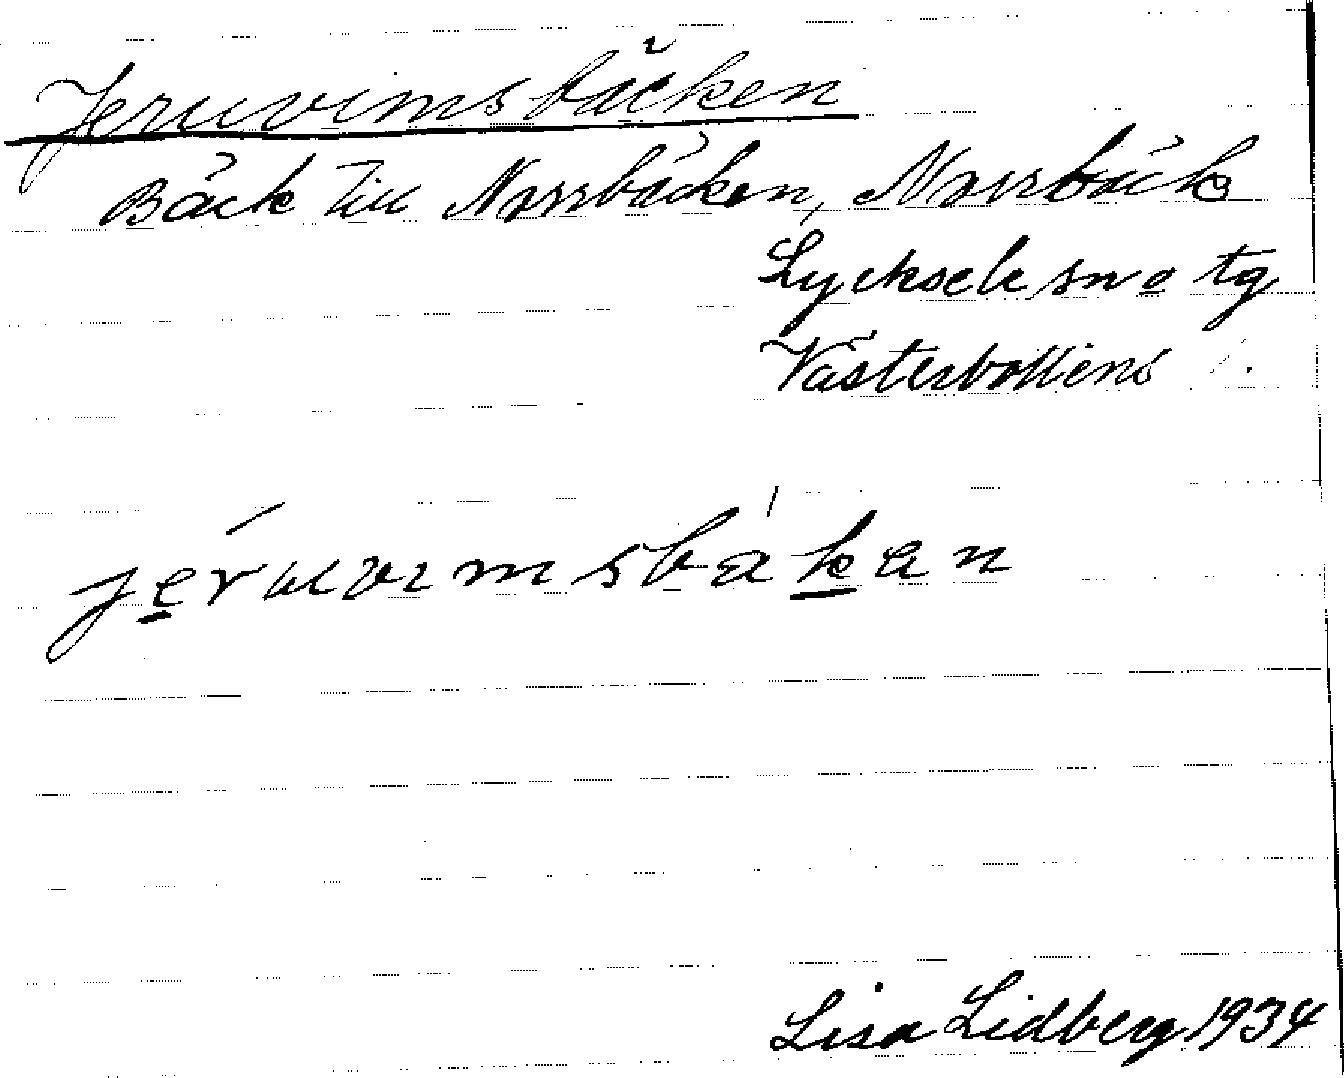 Jeruvimsbäcken
Bäck till Norrbäcken, Norrbäck
Lycksele sn o tg
Västerbottens l.
jeruvimsbäkan
Lisa Lidberg 1934